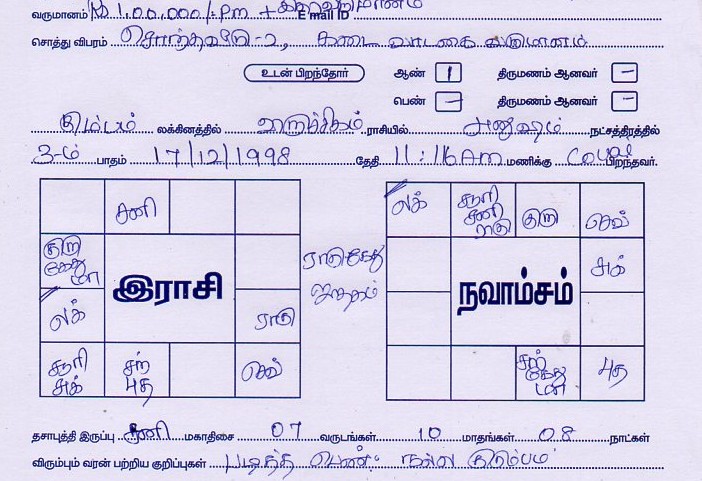 வருமானம் ரூ 1,00,000/- Pm + E mail ID
சொத்து விபரம் சொந்தவீடு-2, கடை வாடகை வருமானம்
உடன் பிறந்தோர் ஆண் 1 திருமணம் ஆனவர் –
பெண் – திருமணம் ஆனவர் –
லக்கினத்தில் விருச்சிகம் ராசியில் அனுஷம் நட்சத்திரத்தில்
2-ம் பாதம் 17/12/1998 தேதி 11:16 Am மணிக்கு பிறந்தவர்.
சனி
குரு கேது மா
லக்
சூரி சுக்
சந் புத
செவ்
ராகு
இராசி
ராகுகேது ஜாதகம்
லக்
சூரி சனி ராகு
குரு
செவ்
சுக்
நவாம்சம்
சந் கேது மா
புத
தசாபுத்தி இருப்பு சனி மகாதிசை 07 வருடங்கள் 10 மாதங்கள் 08 நாட்கள்
விரும்பும் வரன் பற்றிய குறிப்புகள் படித்த பெண். நல்ல குடும்பம்